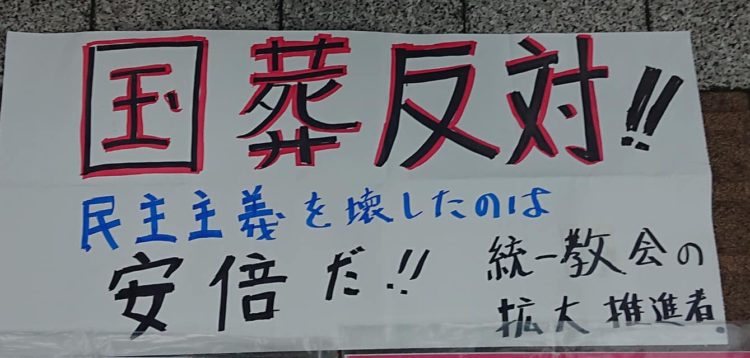 国葬反対!!
民主主義を壊したのは
安倍だ!!
統一教会の
拡大推進者